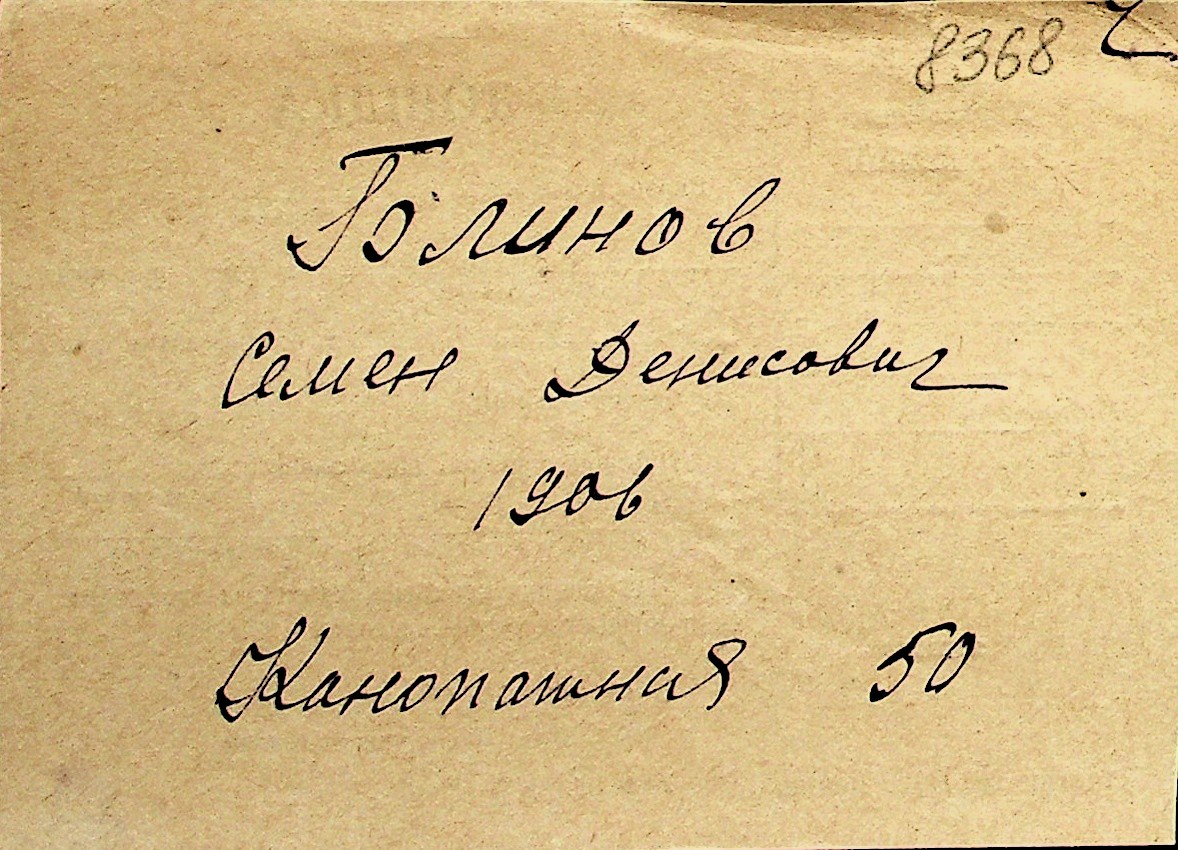 8368
Блинов
Семен Денисович
1906
Канопатная 50